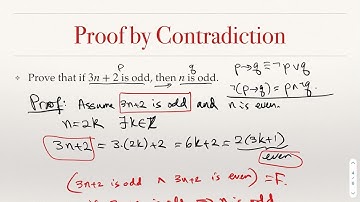 Proof by Contradiction
p q
Prove that if 3n + 2 is odd, then n is odd.
p→q ≡ ¬p∨q
¬(p→q) = p∧¬q.
Proof: Assume 3n+2 is odd and n is even.
n=2k ∃k∈ℤ
3n+2 = 3.(2k)+2 = 6k+2 = 2(3k+1)
even
(3n+2 is odd ∧ 3n+2 is even) = F.
⟹ n is odd